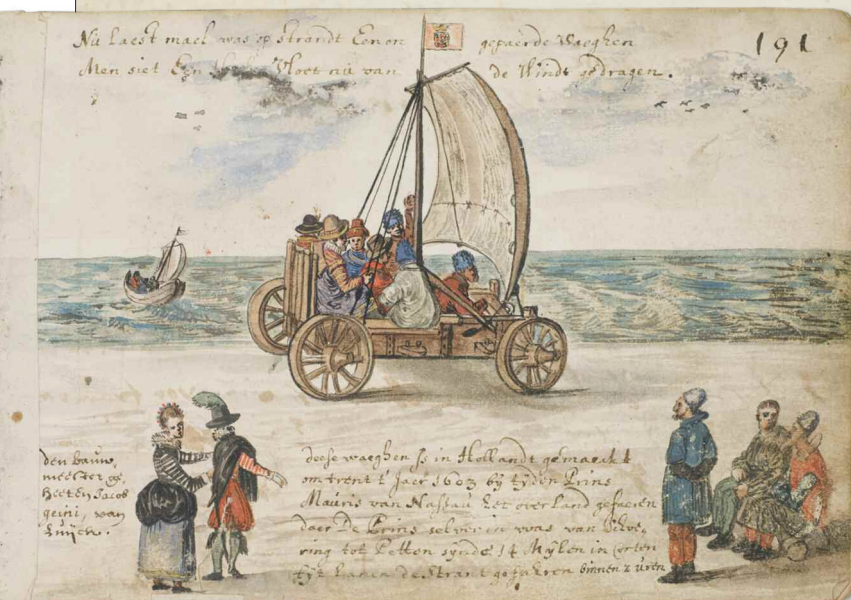 191
Nu laest mael was op strandt Een on gepaerde Waeghen
Men siet Een Vloet nu van de Windt gedragen.
den bauw,
meester ge,
heeten Jacob
van
Luijck.
deese waeghen is in Hollandt gemaeckt
omtrent t' Jaer 1603 bij tyden Prins
Mauris van Nassau het over Land
daer De Prins selver in was van Scheve,
ring tot Petten synde 14 Mylen in corten
tyt De Strant gefaeren binnen 2 uren